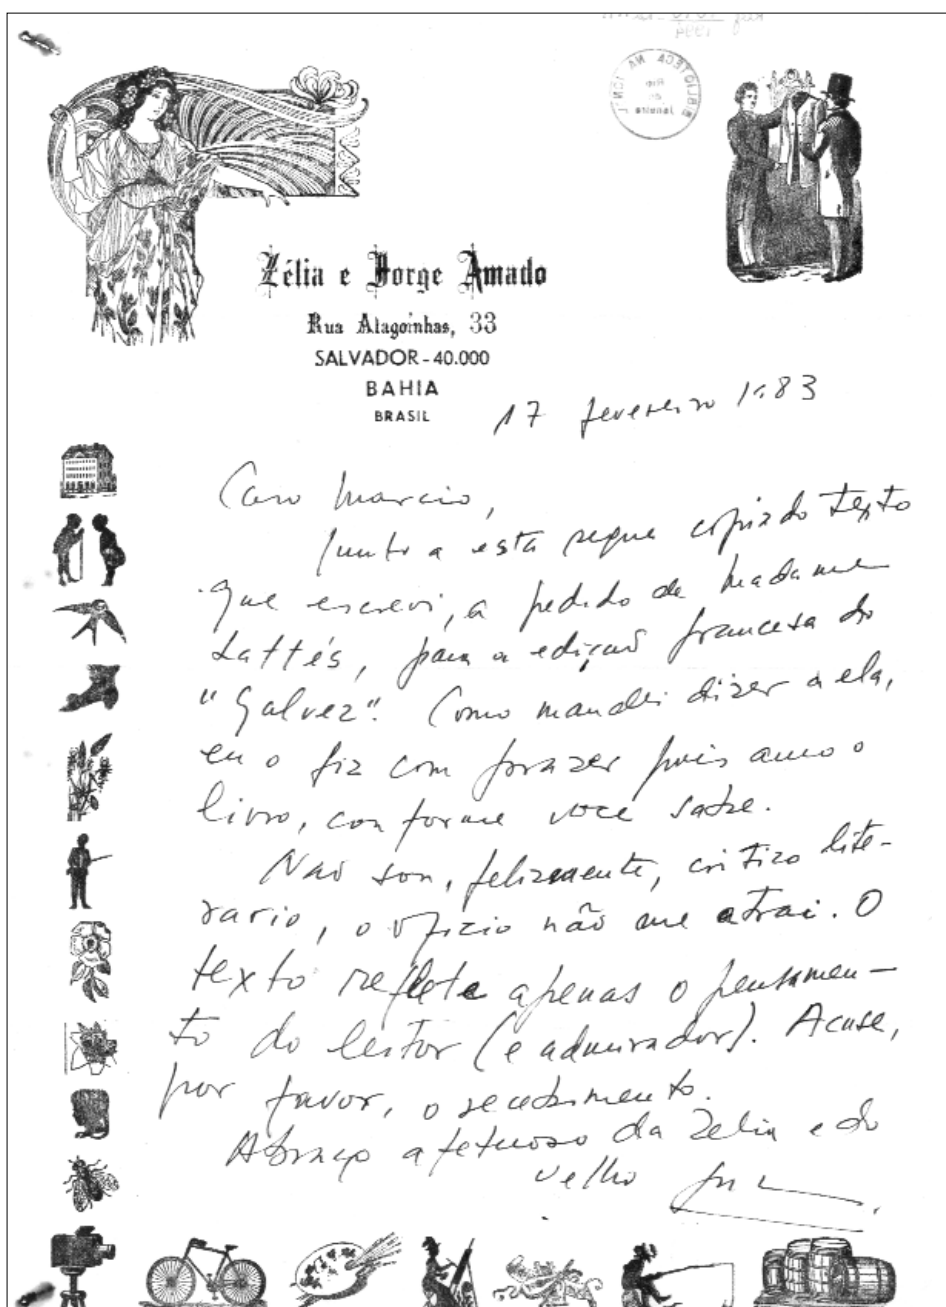 BIBLIOTECA NACIONAL
Rio
de
Janeiro
Zélia e Jorge Amado
Rua Alagoinhas, 33
SALVADOR - 40.000
BAHIA
BRASIL
17 fevereiro 1983
Caro Marcio,
Junto a esta segue copia do texto
que escrevi, a pedido de Madame
Lattés, para a edição francesa do
"Galvez". Como mandei dizer a ela,
eu o fiz com prazer pois amo o
livro, conforme você sabe.
Não sou, felizmente, critico lite-
rario, o oficio não me atrai. O
texto reflete apenas o pensamen-
to do leitor (e admirador). Acuse,
por favor, o recebimento.
Abraço afetuoso da Zelia e do
velho